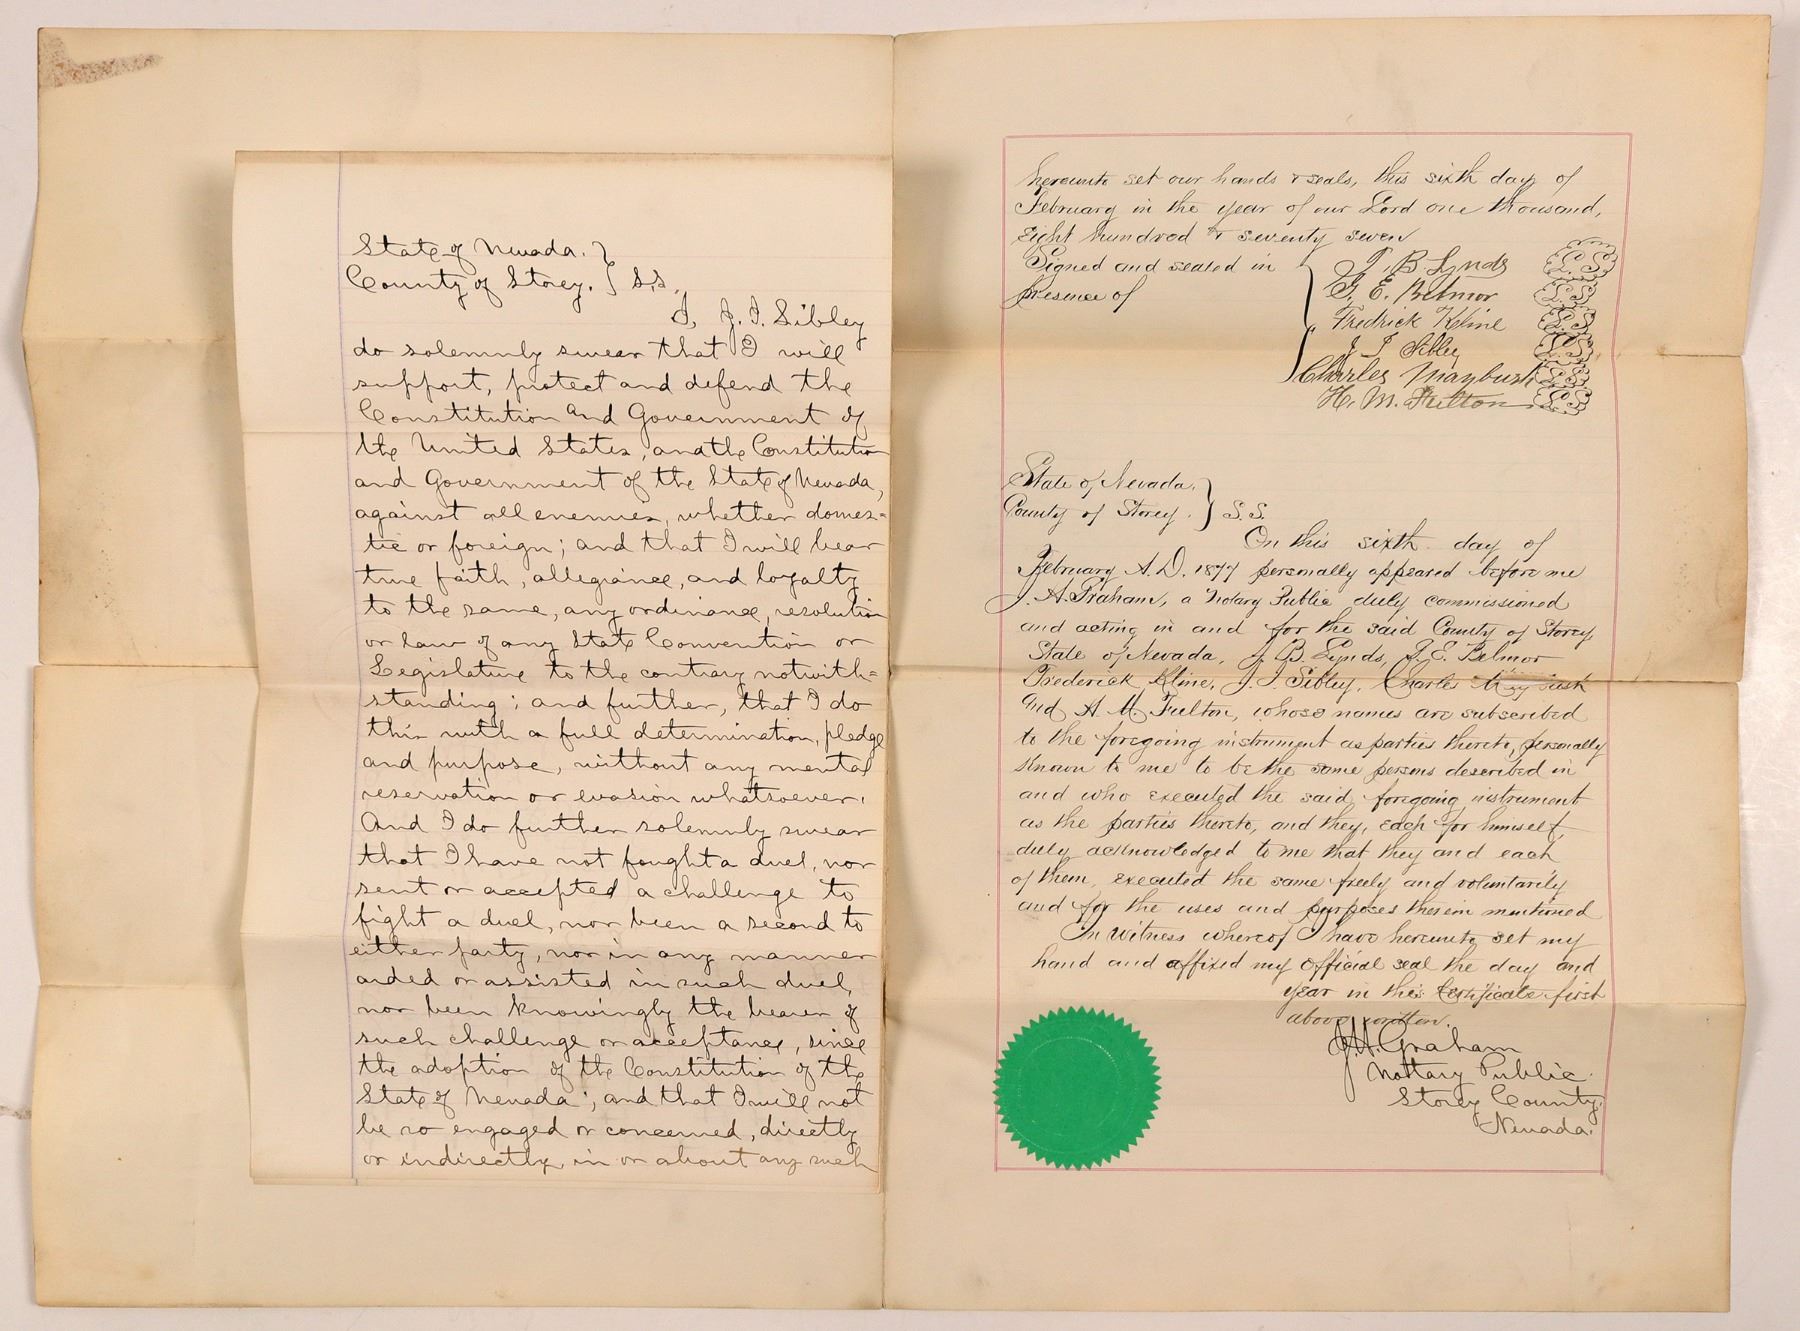 State of Nevada. }
County of Storey. } S.S.
I, J. I. Sibley
do solemnly swear that I will
support, protect and defend the
Constitution and Government of
the United States, and the Constitution
and Government of the State of Nevada,
against all enemies, whether domes=
tic or foreign; and that I will bear
true faith, allegiance, and loyalty
to the same, any ordinance, resolution
or law of any State Convention or
Legislature to the contrary notwith=
standing; and further, that I do
this with a full determination, pledge
and purpose, without any mental
reservation or evasion whatsoever.
And I do further solemnly swear
that I have not fought a duel, nor
sent or accepted a challenge to
fight a duel, nor been a second to
either party, nor in any manner
aided or assisted in such duel,
nor been knowingly the bearer of
such challenge or acceptance, since
the adoption of the Constitution of the
State of Nevada; and that I will not
be so engaged or concerned, directly
or indirectly, in or about any such
hereunto set our hands & seals, this sixth day of
February in the year of our Lord one thousand,
Eight hundred & seventy seven
Signed and sealed in
presence of
J. B. Lynds L.S
G. E. Belmor L.S
Fredrick Kline L.S
J I Sibley L.S
Charles Maybush L.S
H. M. Fulton L.S
State of Nevada. }
County of Storey. } S.S.
On this sixth day of
February A.D. 1877 personally appeared before me
J. H. Graham, a Notary Public duly commissioned
and acting in and for the said County of Storey,
State of Nevada, J. B. Lynds, G. E. Belmor
Frederick Kline, J. I. Sibley, Charles Maybush
and H. M. Fulton, whose names are subscribed
to the foregoing instrument as parties thereto, personally
known to me to be the same persons described in
and who executed the said foregoing instrument
as the parties thereto, and they, each for himself,
duly acknowledged to me that they and each
of them, executed the same freely and voluntarily
and for the uses and purposes therein mentioned
In Witness whereof I have hereunto set my
hand and affixed my official seal the day and
year in this Certificate first
above written.
J. H. Graham
Nottary Public
Storey County.
Nevada.